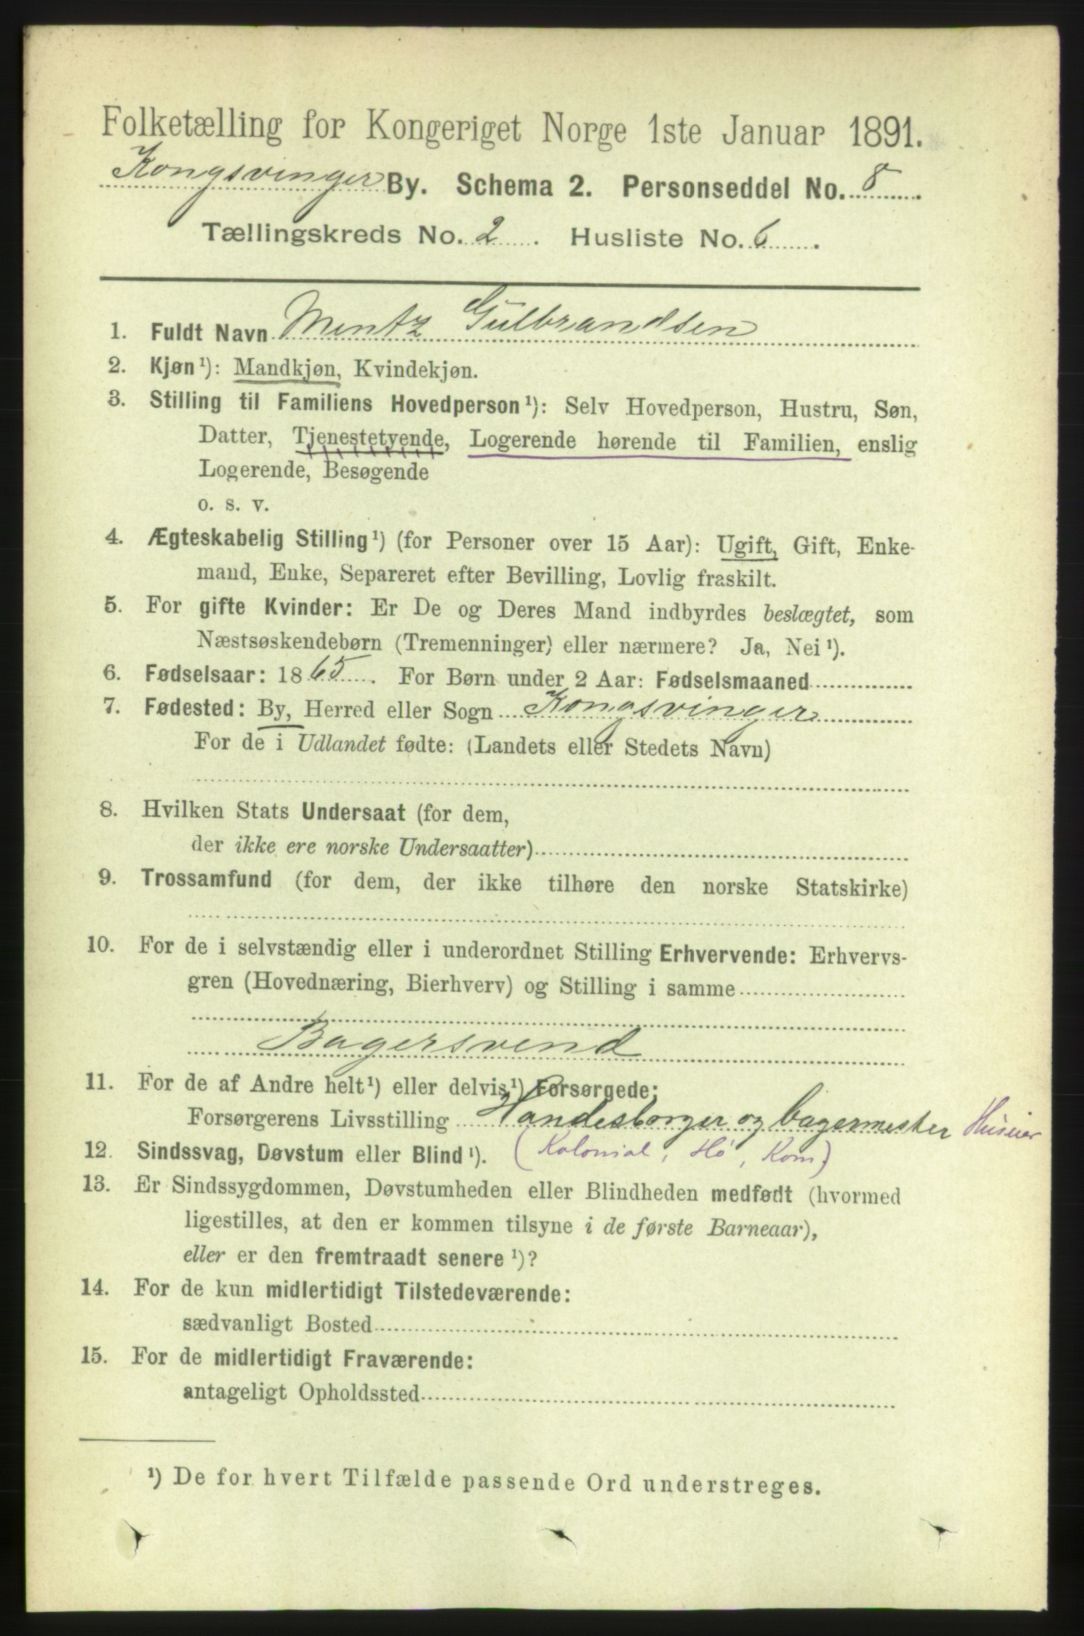 Folketælling for Kongeriget Norge 1ste Januar 1891.
Kongsvinger By. Schema 2. Personseddel No. 8.
Tællingskreds No. 2. Husliste No. 6.
1. Fuldt Navn Mentz Gulbrandsen
2. Kjøn¹): Mandkjøn, Kvindekjøn.
3. Stilling til Familiens Hovedperson¹): Selv Hovedperson, Hustru, Søn,
Datter, Tjenestetyende, Logerende hørende til Familien, enslig
Logerende, Besøgende
o. s. v.
4. Ægteskabelig Stilling¹) (for Personer over 15 Aar): Ugift, Gift, Enke-
mand, Enke, Separeret efter Bevilling, Lovlig fraskilt.
5. For gifte Kvinder: Er De og Deres Mand indbyrdes beslægtet, som
Næstsøskendebørn (Tremenninger) eller nærmere? Ja, Nei¹).
6. Fødselsaar: 1865. For Børn under 2 Aar: Fødselsmaaned
7. Fødested: By, Herred eller Sogn Kongsvinger
For de i Udlandet fødte: (Landets eller Stedets Navn)
8. Hvilken Stats Undersaat (for dem,
der ikke ere norske Undersaatter)
9. Trossamfund (for dem, der ikke tilhøre den norske Statskirke)
10. For de i selvstændig eller i underordnet Stilling Erhvervende: Erhvervs-
gren (Hovednæring, Bierhverv) og Stilling i samme
Bagersvend
11. For de af Andre helt¹) eller delvis¹) Forsørgede:
Forsørgerens Livsstilling Handesborger og bagermester Huseier
12. Sindssvag, Døvstum eller Blind¹). (Kolonial, Hø, Korn)
13. Er Sindssygdommen, Døvstumheden eller Blindheden medfødt (hvormed
ligestilles, at den er kommen tilsyne i de første Barneaar),
eller er den fremtraadt senere¹)?
14. For de kun midlertidigt Tilstedeværende:
sædvanligt Bosted
15. For de midlertidigt Fraværende:
antageligt Opholdssted
¹) De for hvert Tilfælde passende Ord understreges.